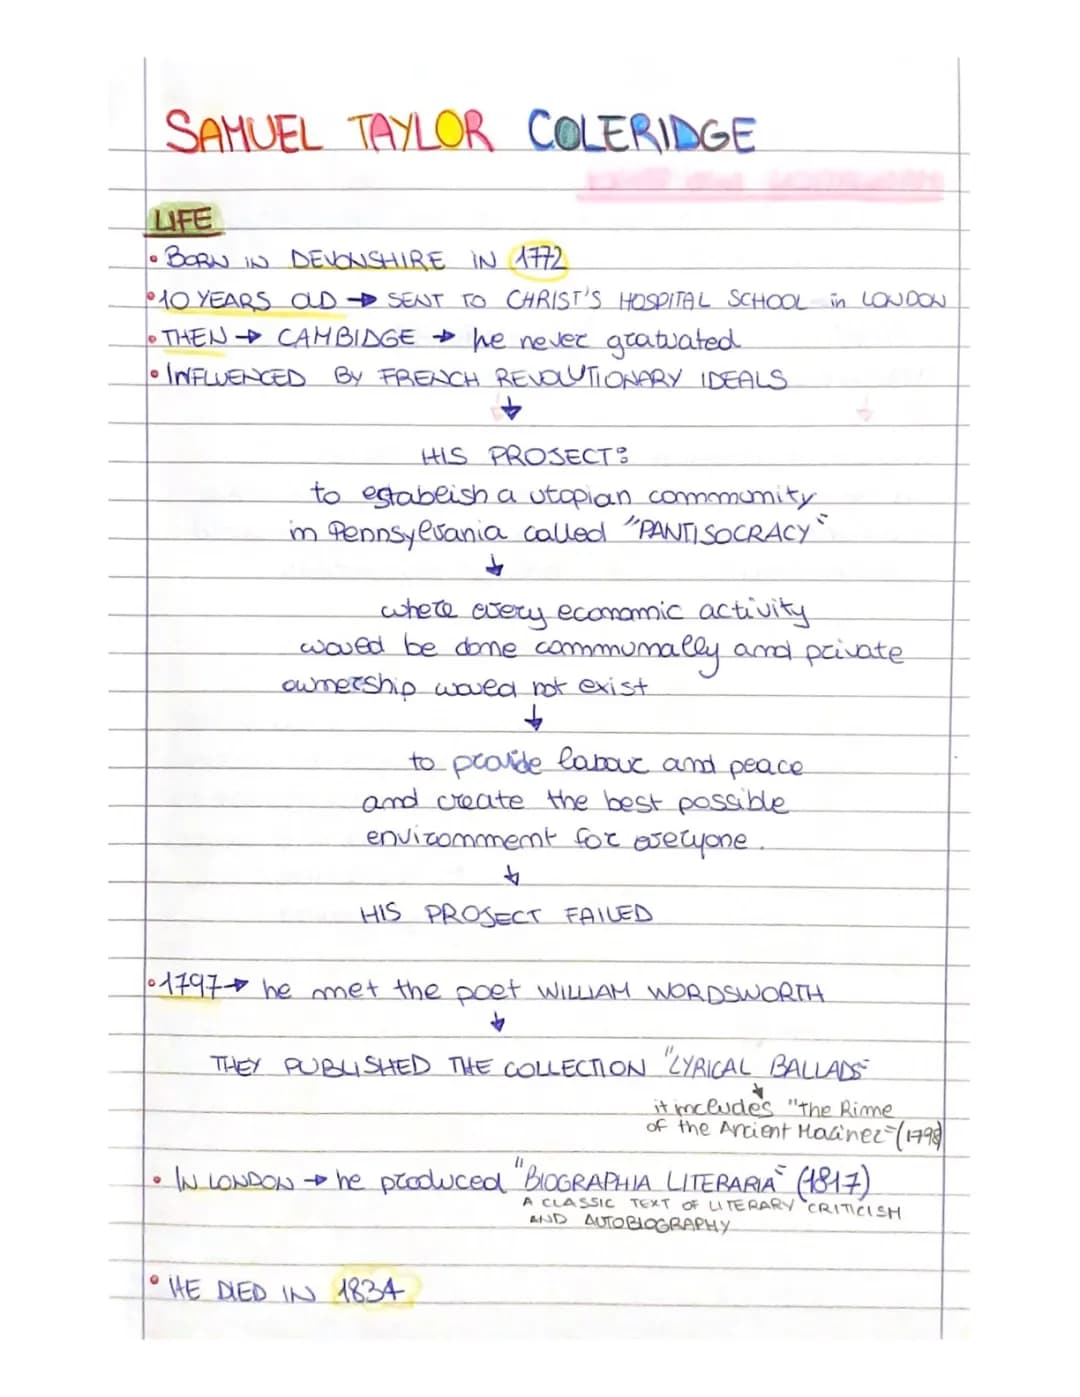 SAMUEL TAYLOR COLERIDGE
LIFE
• BORN IN DEVONSHIRE IN 1772
• 10 YEARS OLD → SENT TO CHRIST'S HOSPITAL SCHOOL in LONDON
• THEN → CAMBIDGE → he never gratuated
• INFLUENCED BY FRENCH REVOLUTIONARY IDEALS
↓
HIS PROJECT:
to establish a utopian community
in Pennsylvania called "PANTISOCRACY"
↓
where every economic activity
would be done communally and private
ownership would not exist
↓
to provide labour and peace
and create the best possible
environment for everyone.
↓
HIS PROJECT FAILED
• 1797 → he met the poet WILLIAM WORDSWORTH
↓
THEY PUBLISHED THE COLLECTION "LYRICAL BALLADS"
↓
it includes "the Rime
of the Ancient Mariner" (1798)
• IN LONDON → he produced "BIOGRAPHIA LITERARIA" (1817)
A CLASSIC TEXT OF LITERARY CRITICISM
AND AUTOBIOGRAPHY
• HE DIED IN 1834